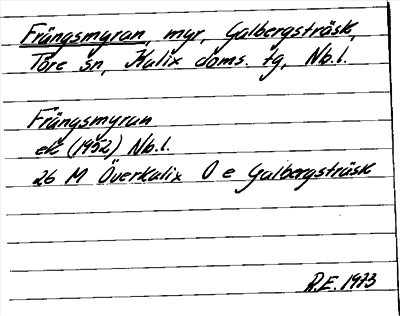 Frängsmyran, myr, Galbergsträsk,
Töre sn, Kalix doms. tg, Nb.l.
Frängsmyran
ek (1952) Nb.l.
26 M Överkalix O e Galbergsträsk
R.E. 1973